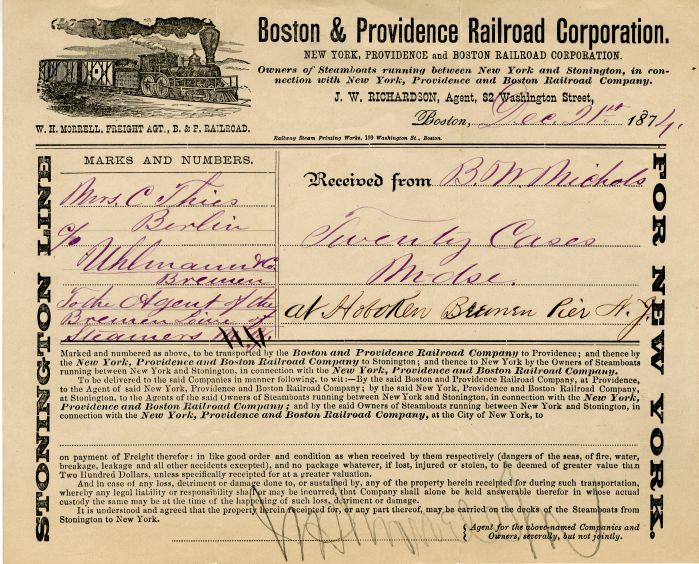 Boston & Providence Railroad Corporation.
NEW YORK, PROVIDENCE and BOSTON RAILROAD CORPORATION.
Owners of Steamboats running between New York and Stonington, in con-
nection with New York, Providence and Boston Railroad Company.
J. W. RICHARDSON, Agent, 82 Washington Street,
Boston, Dec. 21st 1874.
W. H. MORRELL, FREIGHT AGT., B. & P. RAILROAD.
Railway Steam Printing Works, 199 Washington St., Boston.
STONINGTON LINE
MARKS AND NUMBERS.
Mrs. C Thies
Berlin
c/o
Uhlmann & Co.
Bremen
To the Agent of the
Bremen Line of
Steamers
Received from B. W. Nichols
Twenty Cases
Mdse.
at Hoboken Bremen Pier N. J.
FOR NEW YORK.
Marked and numbered as above, to be transported by the Boston and Providence Railroad Company to Providence; and thence by
the New York, Providence and Boston Railroad Company to Stonington; and thence to New York by the Owners of Steamboats
running between New York and Stonington, in connection with the New York, Providence and Boston Railroad Company.
To be delivered to the said Companies in manner following, to wit:—By the said Boston and Providence Railroad Company, at Providence,
to the Agent of said New York, Providence and Boston Railroad Company; by the said New York, Providence and Boston Railroad Company,
at Stonington, to the Agents of the said Owners of Steamboats running between New York and Stonington, in connection with the New York,
Providence and Boston Railroad Company; and by the said Owners of Steamboats running between New York and Stonington, in
connection with the New York, Providence and Boston Railroad Company, at the City of New York, to
on payment of Freight therefor: in like good order and condition as when received by them respectively (dangers of the seas, of fire, water,
breakage, leakage and all other accidents excepted), and no package whatever, if lost, injured or stolen, to be deemed of greater value than
Two Hundred Dollars, unless specifically receipted for at a greater valuation.
And in case of any loss, detriment or damage done to, or sustained by, any of the property herein receipted for during such transportation,
whereby any legal liability or responsibility shall or may be incurred, that Company shall alone be held answerable therefor in whose actual
custody the same may be at the time of the happening of such loss, detriment or damage.
It is understood and agreed that the property herein receipted for, or any part thereof, may be carried on the decks of the Steamboats from
Stonington to New York.
Agent for the above-named Companies and
Owners, severally, but not jointly.